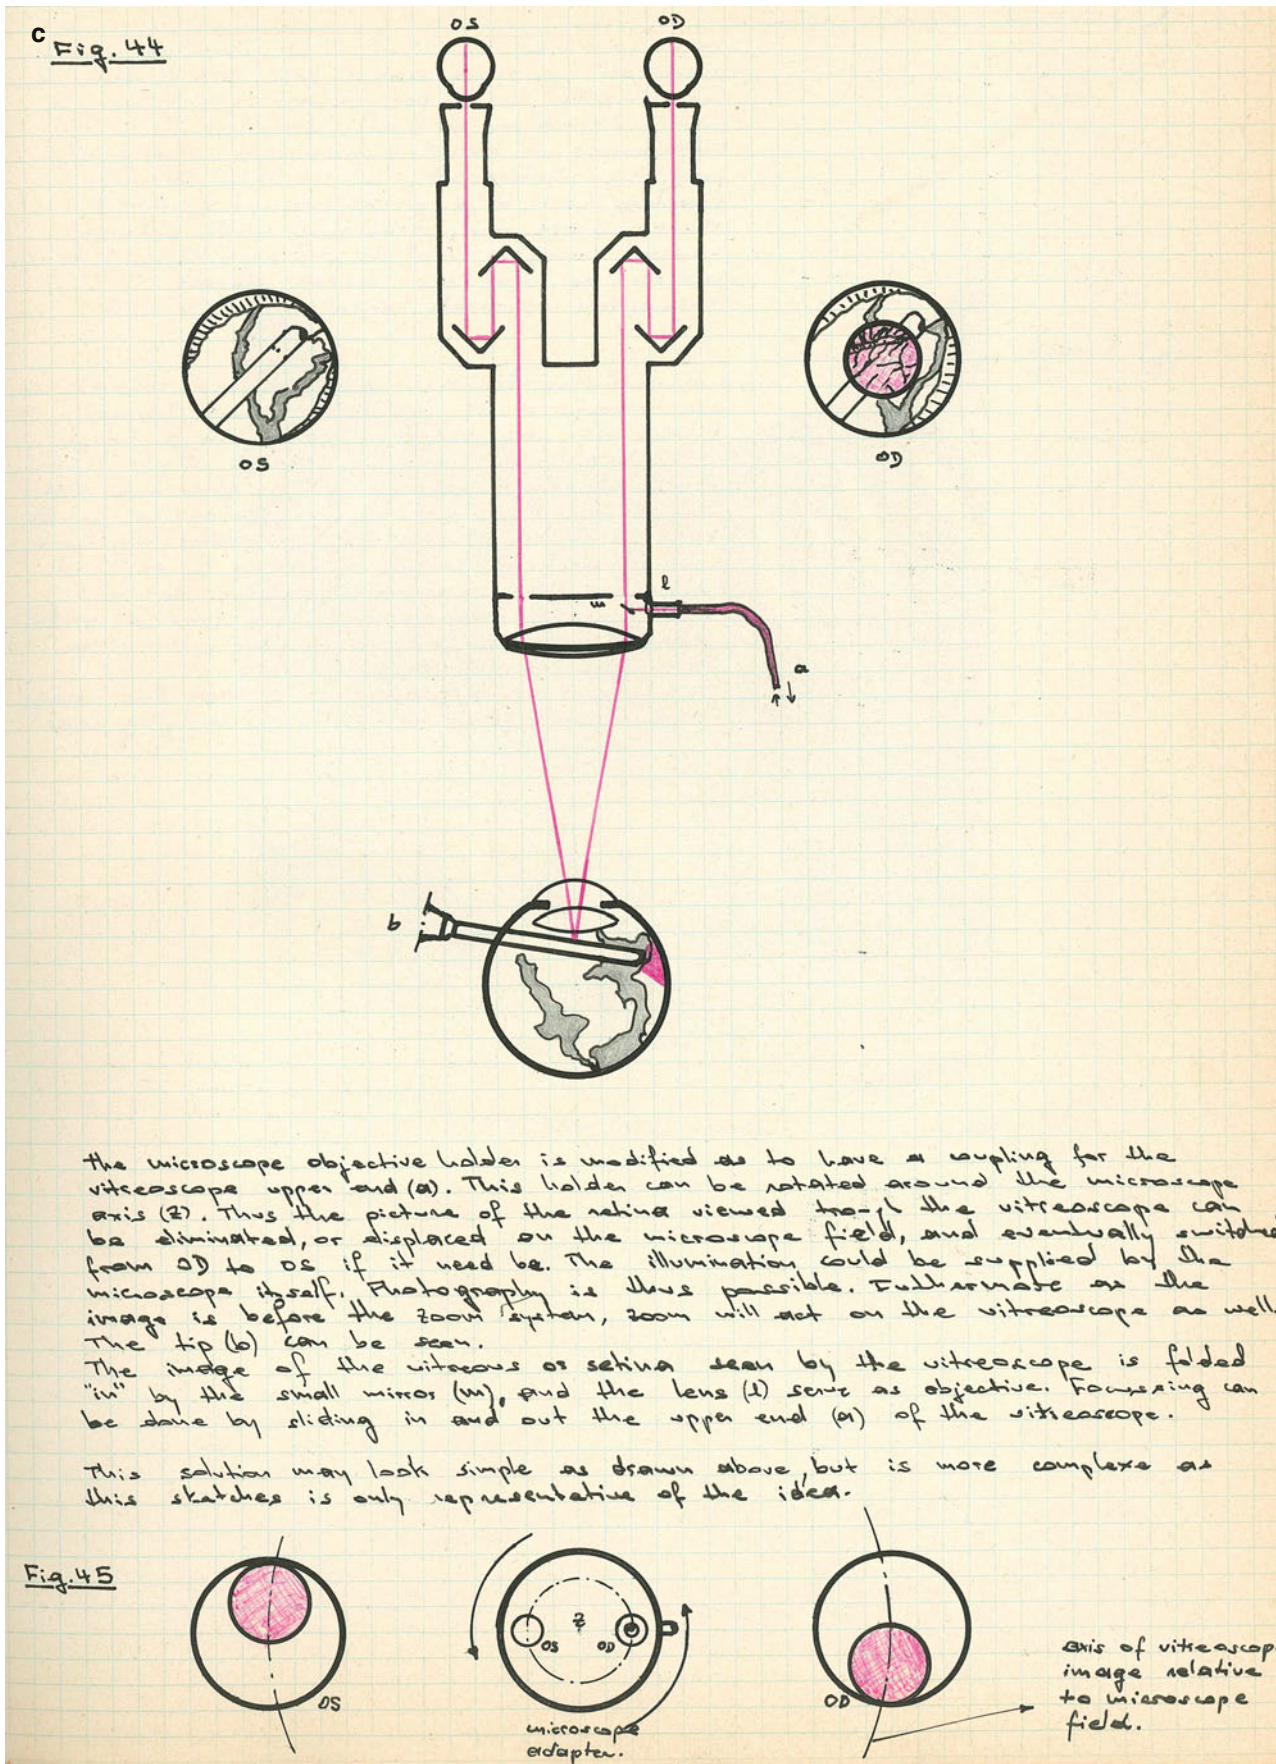 c
Fig. 44
OS
OD
OS
OD
m
l
a
b
The microscope objective holder is modified as to have a coupling for the
vitreoscope upper end (a). This holder can be rotated around the microscope
axis (Z). Thus the picture of the retina viewed trough the vitreoscope can
be eliminated, or displaced on the microscope field, and eventually switched
from OD to OS if it need be. The illumination could be supplied by the
microscope itself. Photography is thus possible. Futhermore as the
image is before the zoom system, zoom will act on the vitreoscope as well.
The tip (b) can be seen.
The image of the vitreous or retina seen by the vitreoscope is folded
"in" by the small mirror (m), and the lens (l) serve as objective. Focussing can
be done by sliding in and out the upper end (a) of the vitreoscope.
This solution may look simple as drawn above, but is more complexe as
this sketches is only representative of the idea.
Fig. 45
OS
OS
Z
OD
microscope
adapter.
OD
axis of vitreoscop
image relative
to microscope
field.